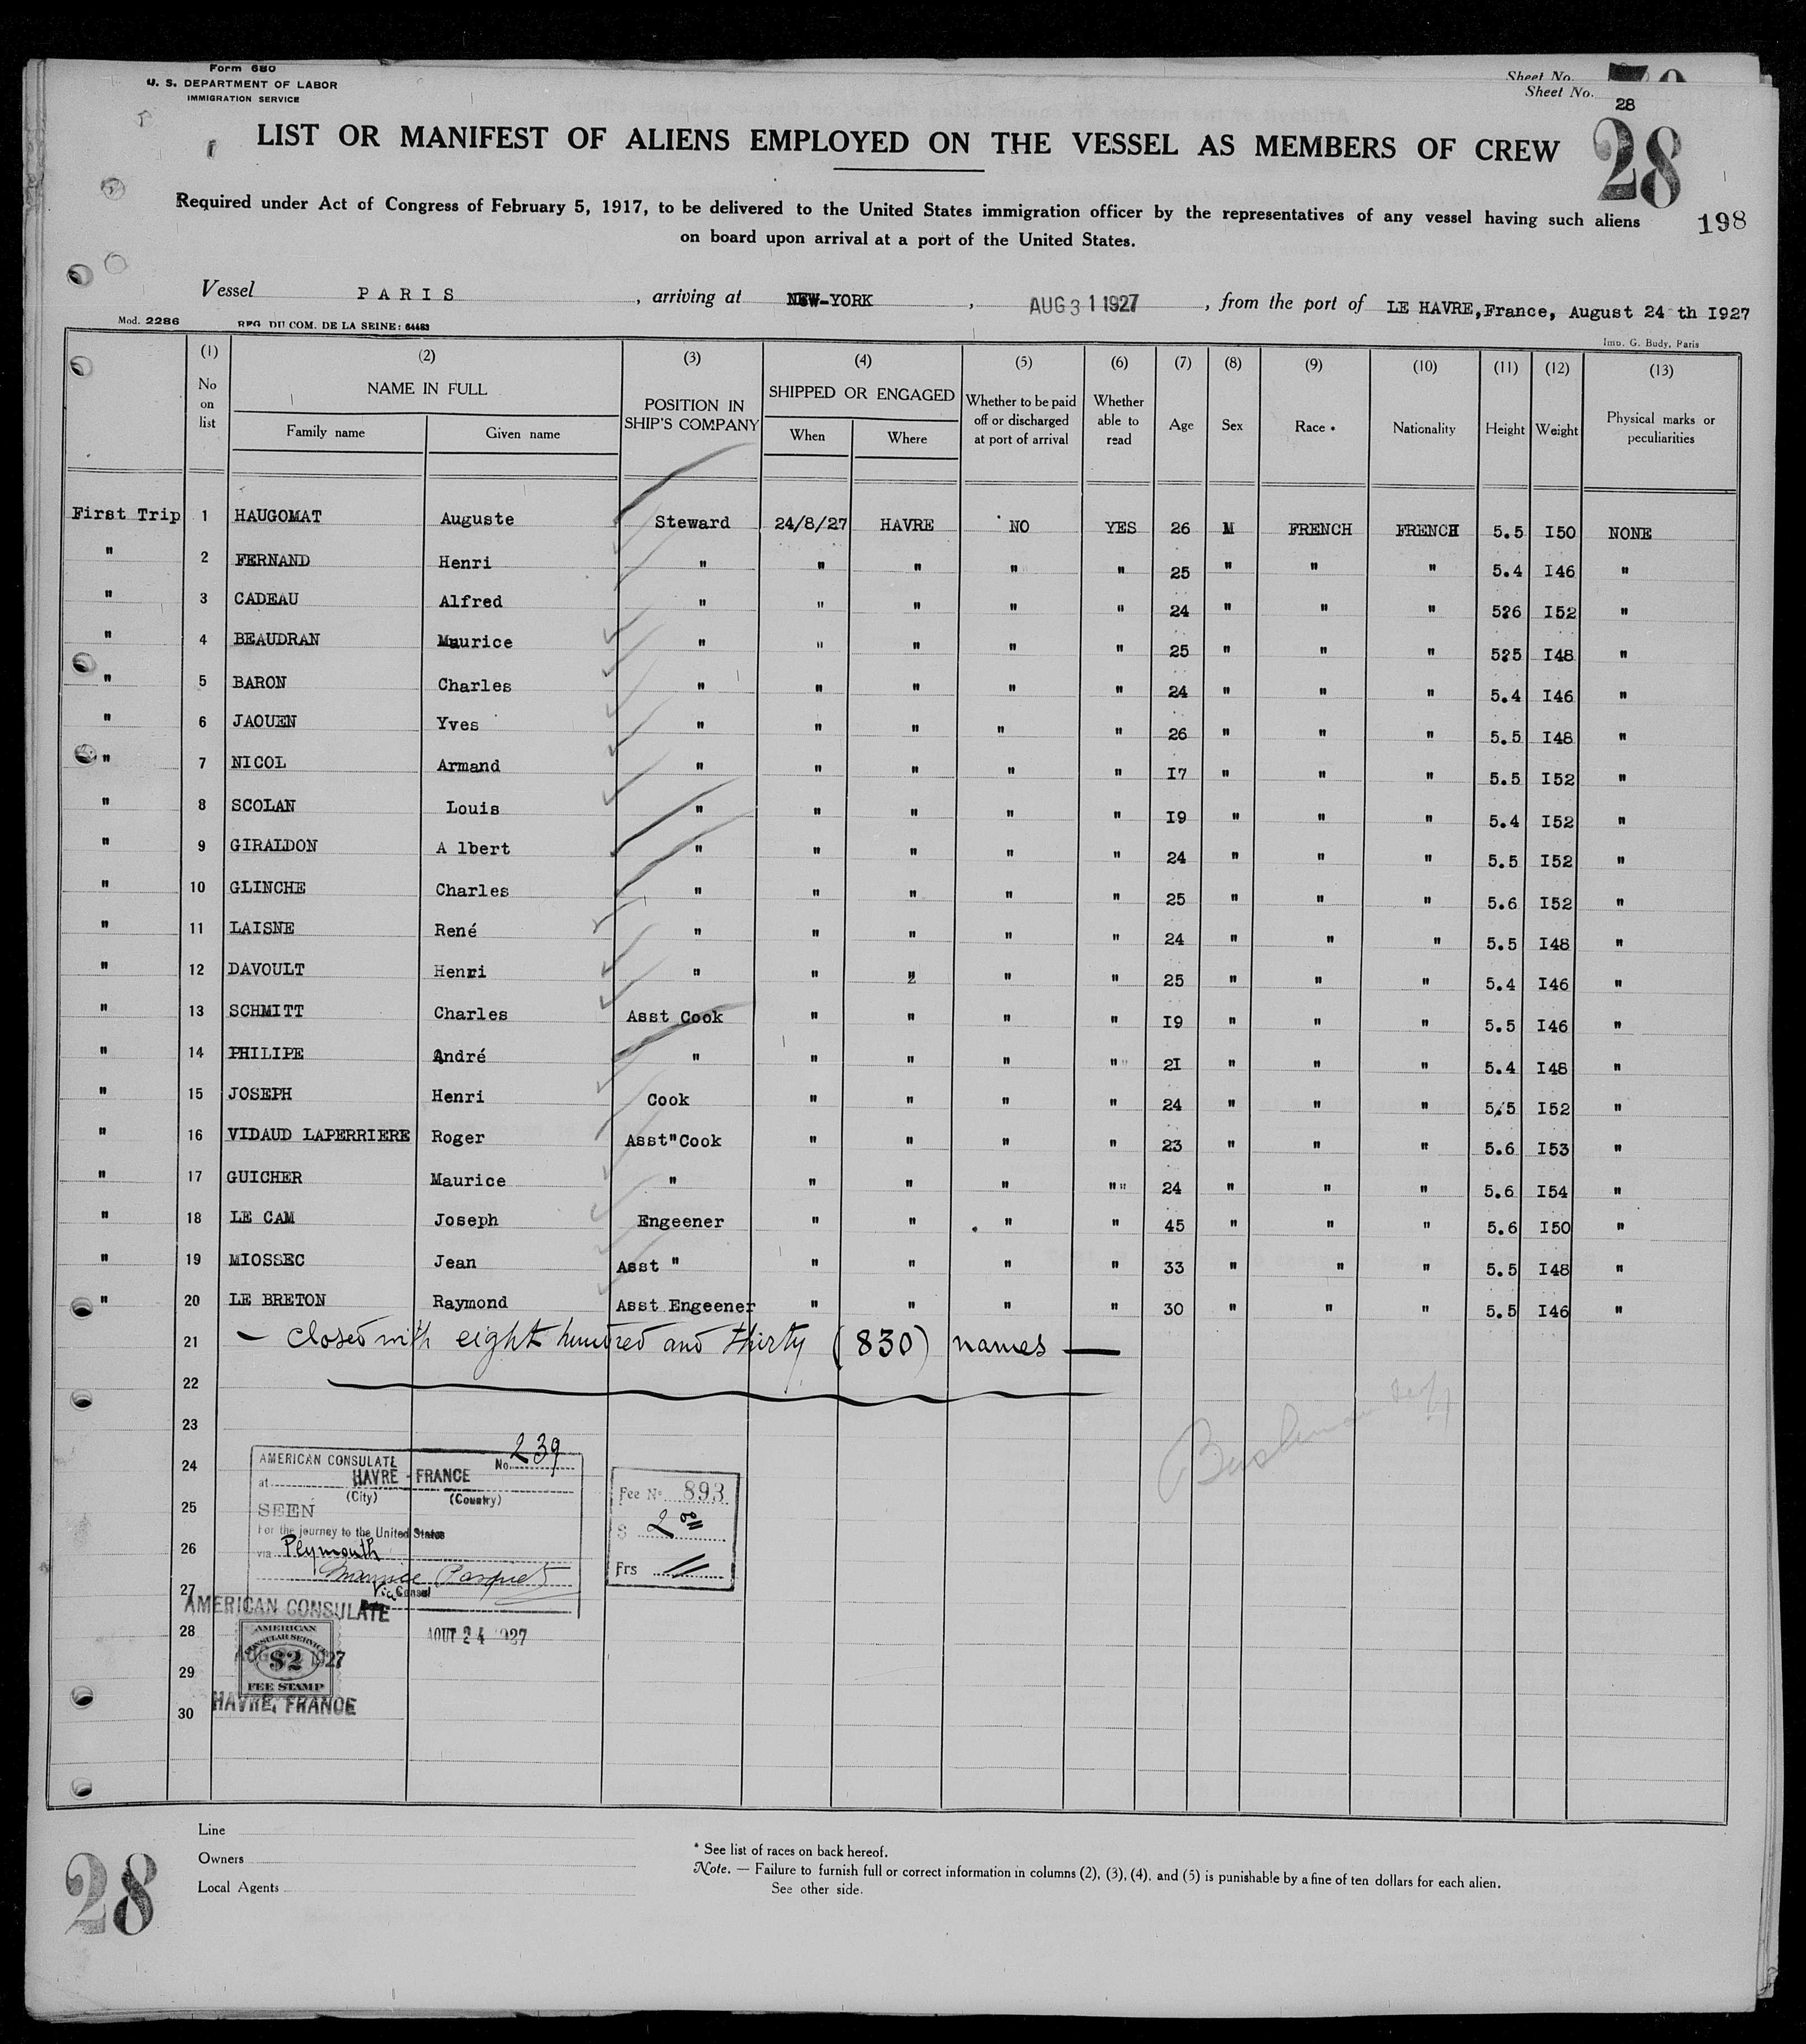 Form 680
U. S. DEPARTMENT OF LABOR
IMMIGRATION SERVICE
Sheet No.
Sheet No. 28
28
198
LIST OR MANIFEST OF ALIENS EMPLOYED ON THE VESSEL AS MEMBERS OF CREW
Required under Act of Congress of February 5, 1917, to be delivered to the United States immigration officer by the representatives of any vessel having such aliens
on board upon arrival at a port of the United States.
Vessel PARIS, arriving at NEW-YORK, AUG 31 1927, from the port of LE HAVRE, France, August 24 th I927
Mod. 2286 REG. DU COM. DE LA SEINE: 64483 Imp. G. Budy, Paris
(1) (2) (3) (4) (5) (6) (7) (8) (9) (10) (11) (12) (13)
No on list NAME IN FULL POSITION IN SHIP'S COMPANY SHIPPED OR ENGAGED Whether to be paid off or discharged at port of arrival Whether able to read Age Sex Race * Nationality Height Weight Physical marks or peculiarities
Family name Given name When Where
First Trip 1 HAUGOMAT Auguste Steward 24/8/27 HAVRE NO YES 26 M FRENCH FRENCH 5.5 I50 NONE
" 2 FERNAND Henri " " " " " 25 " " " 5.4 I46 "
" 3 CADEAU Alfred " " " " " 24 " " " 526 I52 "
" 4 BEAUDRAN Maurice " " " " " 25 " " " 525 I48 "
" 5 BARON Charles " " " " " 24 " " " 5.4 I46 "
" 6 JAOUEN Yves " " " " " 26 " " " 5.5 I48 "
" 7 NICOL Armand " " " " " I7 " " " 5.5 I52 "
" 8 SCOLAN Louis " " " " " I9 " " " 5.4 I52 "
" 9 GIRALDON A lbert " " " " " 24 " " " 5.5 I52 "
" 10 GLINCHE Charles " " " " " 25 " " " 5.6 I52 "
" 11 LAISNE René " " " " " 24 " " " 5.5 I48 "
" 12 DAVOULT Henri " " " " " 25 " " " 5.4 I46 "
" 13 SCHMITT Charles Asst Cook " " " " I9 " " " 5.5 I46 "
" 14 PHILIPE André " " " " " 2I " " " 5.4 I48 "
" 15 JOSEPH Henri Cook " " " " 24 " " " 5.5 I52 "
" 16 VIDAUD LAPERRIERE Roger Asst"Cook " " " " 23 " " " 5.6 I53 "
" 17 GUICHER Maurice " " " " "" 24 " " " 5.6 I54 "
" 18 LE CAM Joseph Engeener " " " " 45 " " " 5.6 I50 "
" 19 MIOSSEC Jean Asst " " " " " 33 " " " 5.5 I48 "
" 20 LE BRETON Raymond Asst Engeener " " " " 30 " " " 5.5 I46 "
21 — closed with eight hundred and thirty (830) names —
22
23
24
25
26
27
28
29
30
AMERICAN CONSULATE No. 239
at HAVRE - FRANCE
(City) (Country)
SEEN
For the journey to the United States
via Plymouth
Vice Consul
AOUT 24 1927
Fee No 893
$ 2 00
Frs
AMERICAN CONSULATE
AMERICAN CONSULAR SERVICE
$2
FEE STAMP
AUG 1927
HAVRE, FRANCE
Line
Owners
Local Agents
* See list of races on back hereof.
Note. — Failure to furnish full or correct information in columns (2), (3), (4), and (5) is punishable by a fine of ten dollars for each alien.
See other side.
28